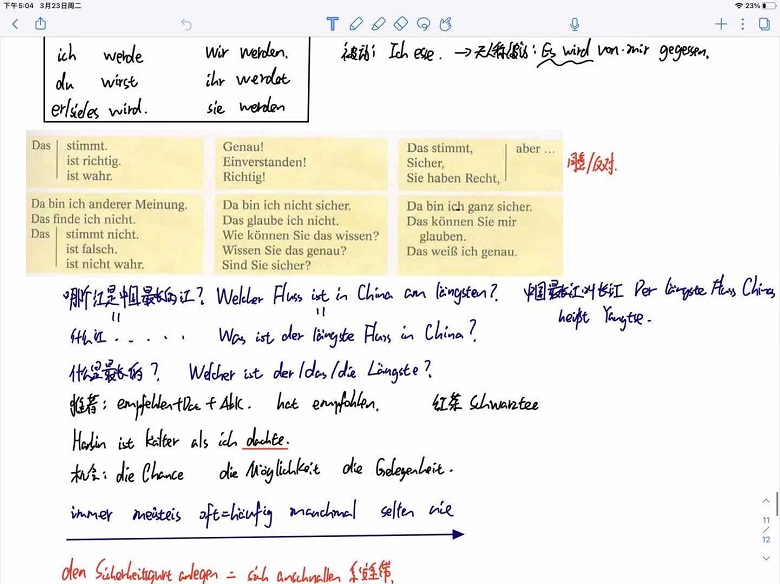 下午5:04 3月23日周二
23%
ich werde wir werden.
du wirst ihr werdet
er/sie/es wird. sie werden
被动: Ich esse. → 无人称被动: Es wird von mir gegessen.
Das stimmt.
ist richtig.
ist wahr.
Genau!
Einverstanden!
Richtig!
Das stimmt, aber ...
Sicher,
Sie haben Recht,
同意/反对.
Da bin ich anderer Meinung.
Das finde ich nicht.
Das stimmt nicht.
ist falsch.
ist nicht wahr.
Da bin ich nicht sicher.
Das glaube ich nicht.
Wie können Sie das wissen?
Wissen Sie das genau?
Sind Sie sicher?
Da bin ich ganz sicher.
Das können Sie mir
glauben.
Das weiß ich genau.
哪个江是中国最长的江? Welcher Fluss ist in China am längsten? 中国最长江叫长江 Der längste Fluss Chinas
heißt Yangtse.
什么江 . . . . . Was ist der längste Fluss in China?
什么是最长的? Welcher ist der/das/die Längste?
推荐: empfehlen+Dat + Akk. hat empfohlen. 红茶 Schwarztee
Harbin ist kälter als ich dachte.
机会: die Chance die Möglichkeit die Gelegenheit.
immer meisteis oft=häufig manchmal selten nie
den Sicherheitsgurt anlegen = sich anschnallen 系安全带.
11
12